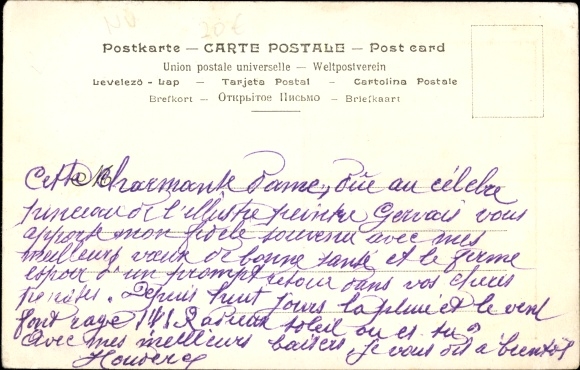 20€
Postkarte — CARTE POSTALE — Post card
Union postale universelle — Weltpostverein
Levelező - Lap — Tarjeta Postal — Cartolina Postale
Brefkort — Открытое Письмо — Briefkaart
Cette charmante Dame, dûe au célèbre
pinceau de l'illustre peintre Gervais vous
apporte mon fidèle souvenir avec mes
meilleurs vœux de bonne santé et le ferme
espoir d'un prompt retour dans vos chères
pénates. Depuis huit jours la pluie et le vent
font rage !!! soleil où es-tu?
Avec mes meilleurs baisers, je vous dis à bientôt